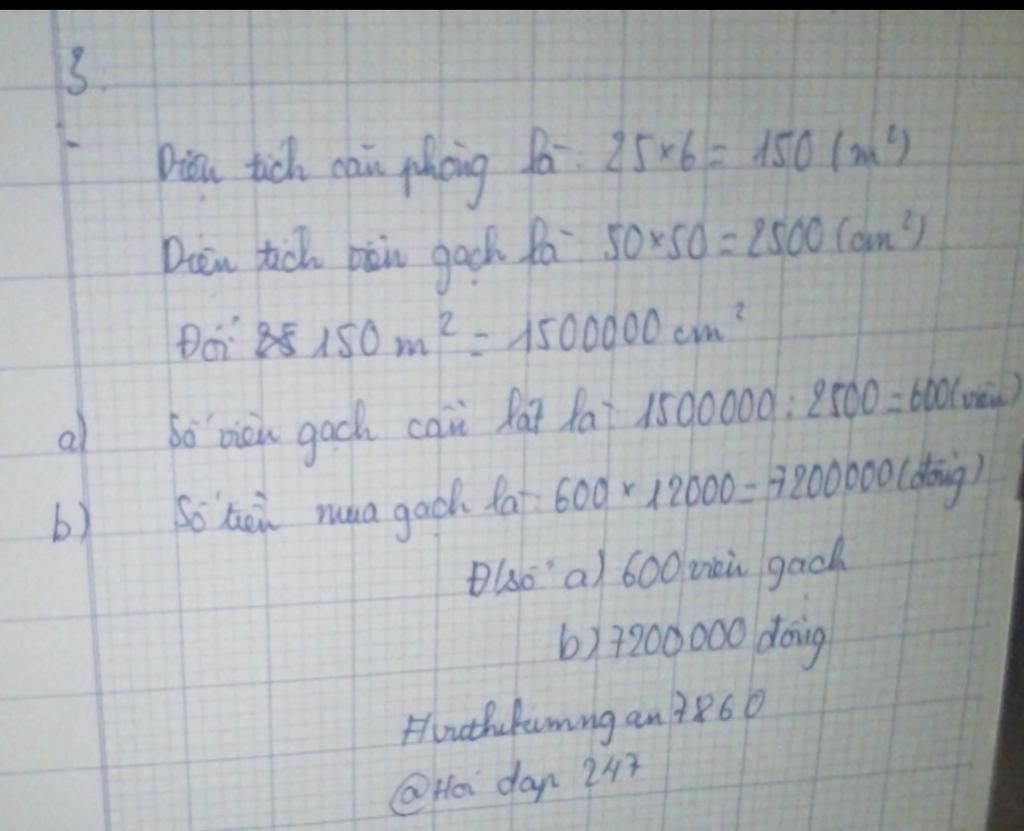 3.
Diện tích căn phòng là: 25×6 = 150 (m²)
Diện tích viên gạch là: 50×50 = 2500 (cm²)
Đổi 150 m² = 1500000 cm²
a) Số viên gạch cần lát là: 1500000 : 2500 = 600 (viên)
b) Số tiền mua gạch là: 600 × 12000 = 7200000 (đồng)
Đ/số: a) 600 viên gạch
b) 7200000 đồng
@Hoi dap 247